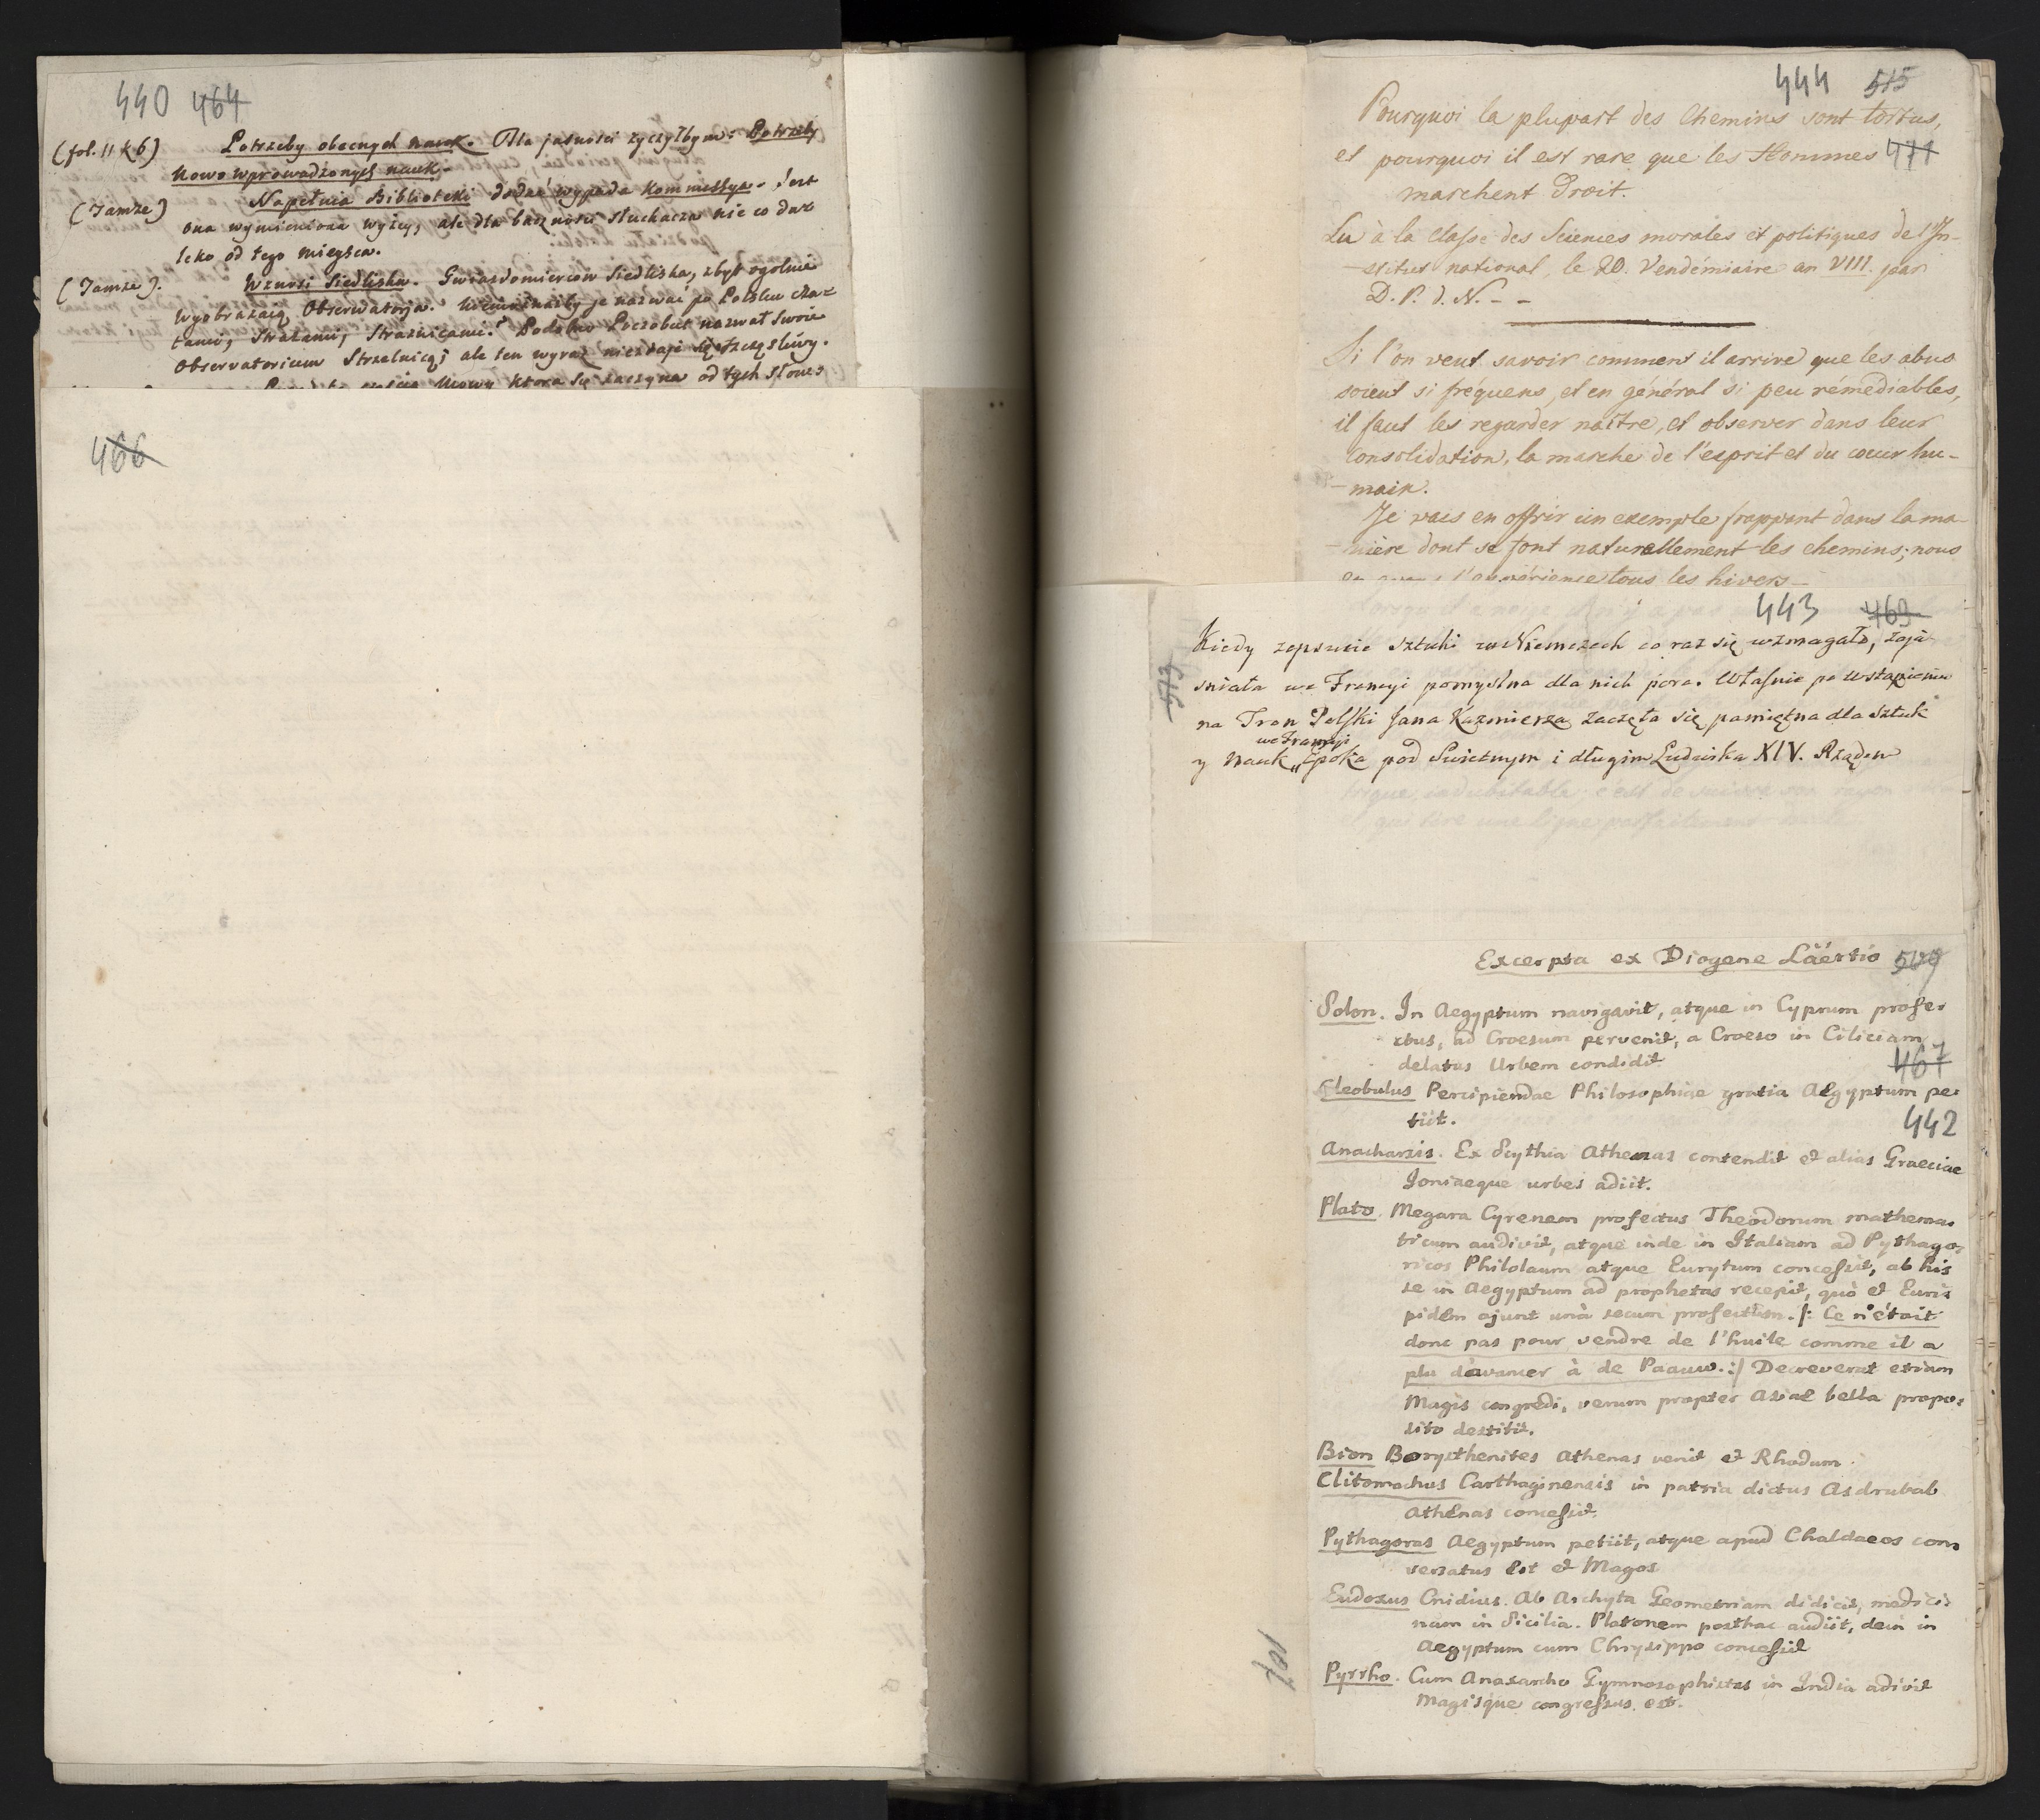 440 464
(fol. 11 k 6) Potrzeby obecnych nauk. Dla jasności życzyłbym: Potrzeby
nowo wprowadzonych nauk.
(Tamże) Napełnia Biblioteki dodać wypada Kommissya. Jest
ona wymieniona wyżey, ale dla baczności słuchacza nie co da=
leko od tego mieysca.
(Tamże). Wznosi Siedliska. Gwiazdomierców Siedliska, zbyt ogolnie
wyobrażaią Obserwatorja. je nazwać po Polsku cza=
tami, Strażami, Strażnicami? Podobno Poczobut nazwał swoie
Observatorium Strzelnicą; ale ten wyraz niezdaje się szczęśliwy.
mowy która się zaczyna od tych słow:
466
444 515
Pourquoi la plupart des Chemins sont tortus,
et pourquoi il est rare que les Hommes 471
marchent Droit.
Lu à la Classe des Sciences morales et politiques de l'In-
-stitut national, le 20. Vendémiaire an VIII. par
D. P. d. N. - -
Si l'on veut savoir comment il arrive que les abus
soient si fréquens, et en général si peu rémédiables,
il faut les regarder naître, et observer dans leur
consolidation, la marche de l'esprit et du coeur hu-
-main.
Je vais en offrir un exemple frappant dans la ma-
-nière dont se font naturellement les chemins; nous
en avons l'expérience tous les hivers-
443 469
Kiedy zepsucie sztuki w Niemczech co raz się wzmagało, zaja-
śniała we Francyi pomyślna dla nich pora. Właśnie po wstąpieniu
na Tron Polski Jana Kazmierza zaczęła się pamiętna dla sztuk
we Francyi
y nauk Epoka pod Swietnym i długim Ludwika XIV. Rządem
Excerpta ex Diogene Läertio 509
Solon. In Aegyptum navigavit, atque in Cyprum profe=
ctus, ad Croesum pervenit, a Croeso in Ciliciam
delatus Urbem condidit. 467
Cleobulus Percipiendae Philosophiae gratia Aegyptum pe=
tiit. 442
Anacharsis. Ex Scythia Athenas contendit et alias Graeciae
Joniaeque urbes adiit.
Plato. Megara Cyrenem profectus Theodorum mathema=
ticum audivit, atque inde in Italiam ad Pythago=
ricos Philolaum atque Eurytum concessit, ab his
se in Aegyptum ad prophetas recepit, quò et Euri=
pidem ajunt unà secum profectum. /: Ce n'était
donc pas pour vendre de l'huile comme il a
plu d'avancer à de Paauw. :/ Decreverat etiam
Magis congredi, verum propter Asiae bella propo=
sito destitit.
Bion Borysthenites Athenas venit et Rhodum.
Clitomachus Carthaginensis in patria dictus Asdrubal
Athenas concessit.
Pythagoras Aegyptum petiit, atque apud Chaldaeos con=
versatus est et Magos
Eudoxus Cnidius. Ab Archyta Geometriam didicit, medici=
nam in Sicilia. Platonem posthac audiit, dein in
Aegyptum cum Chrysippo concessit
Pyrrho. Cum Anaxarcho Gymnosophistas in India adivit
Magisque congressus est.